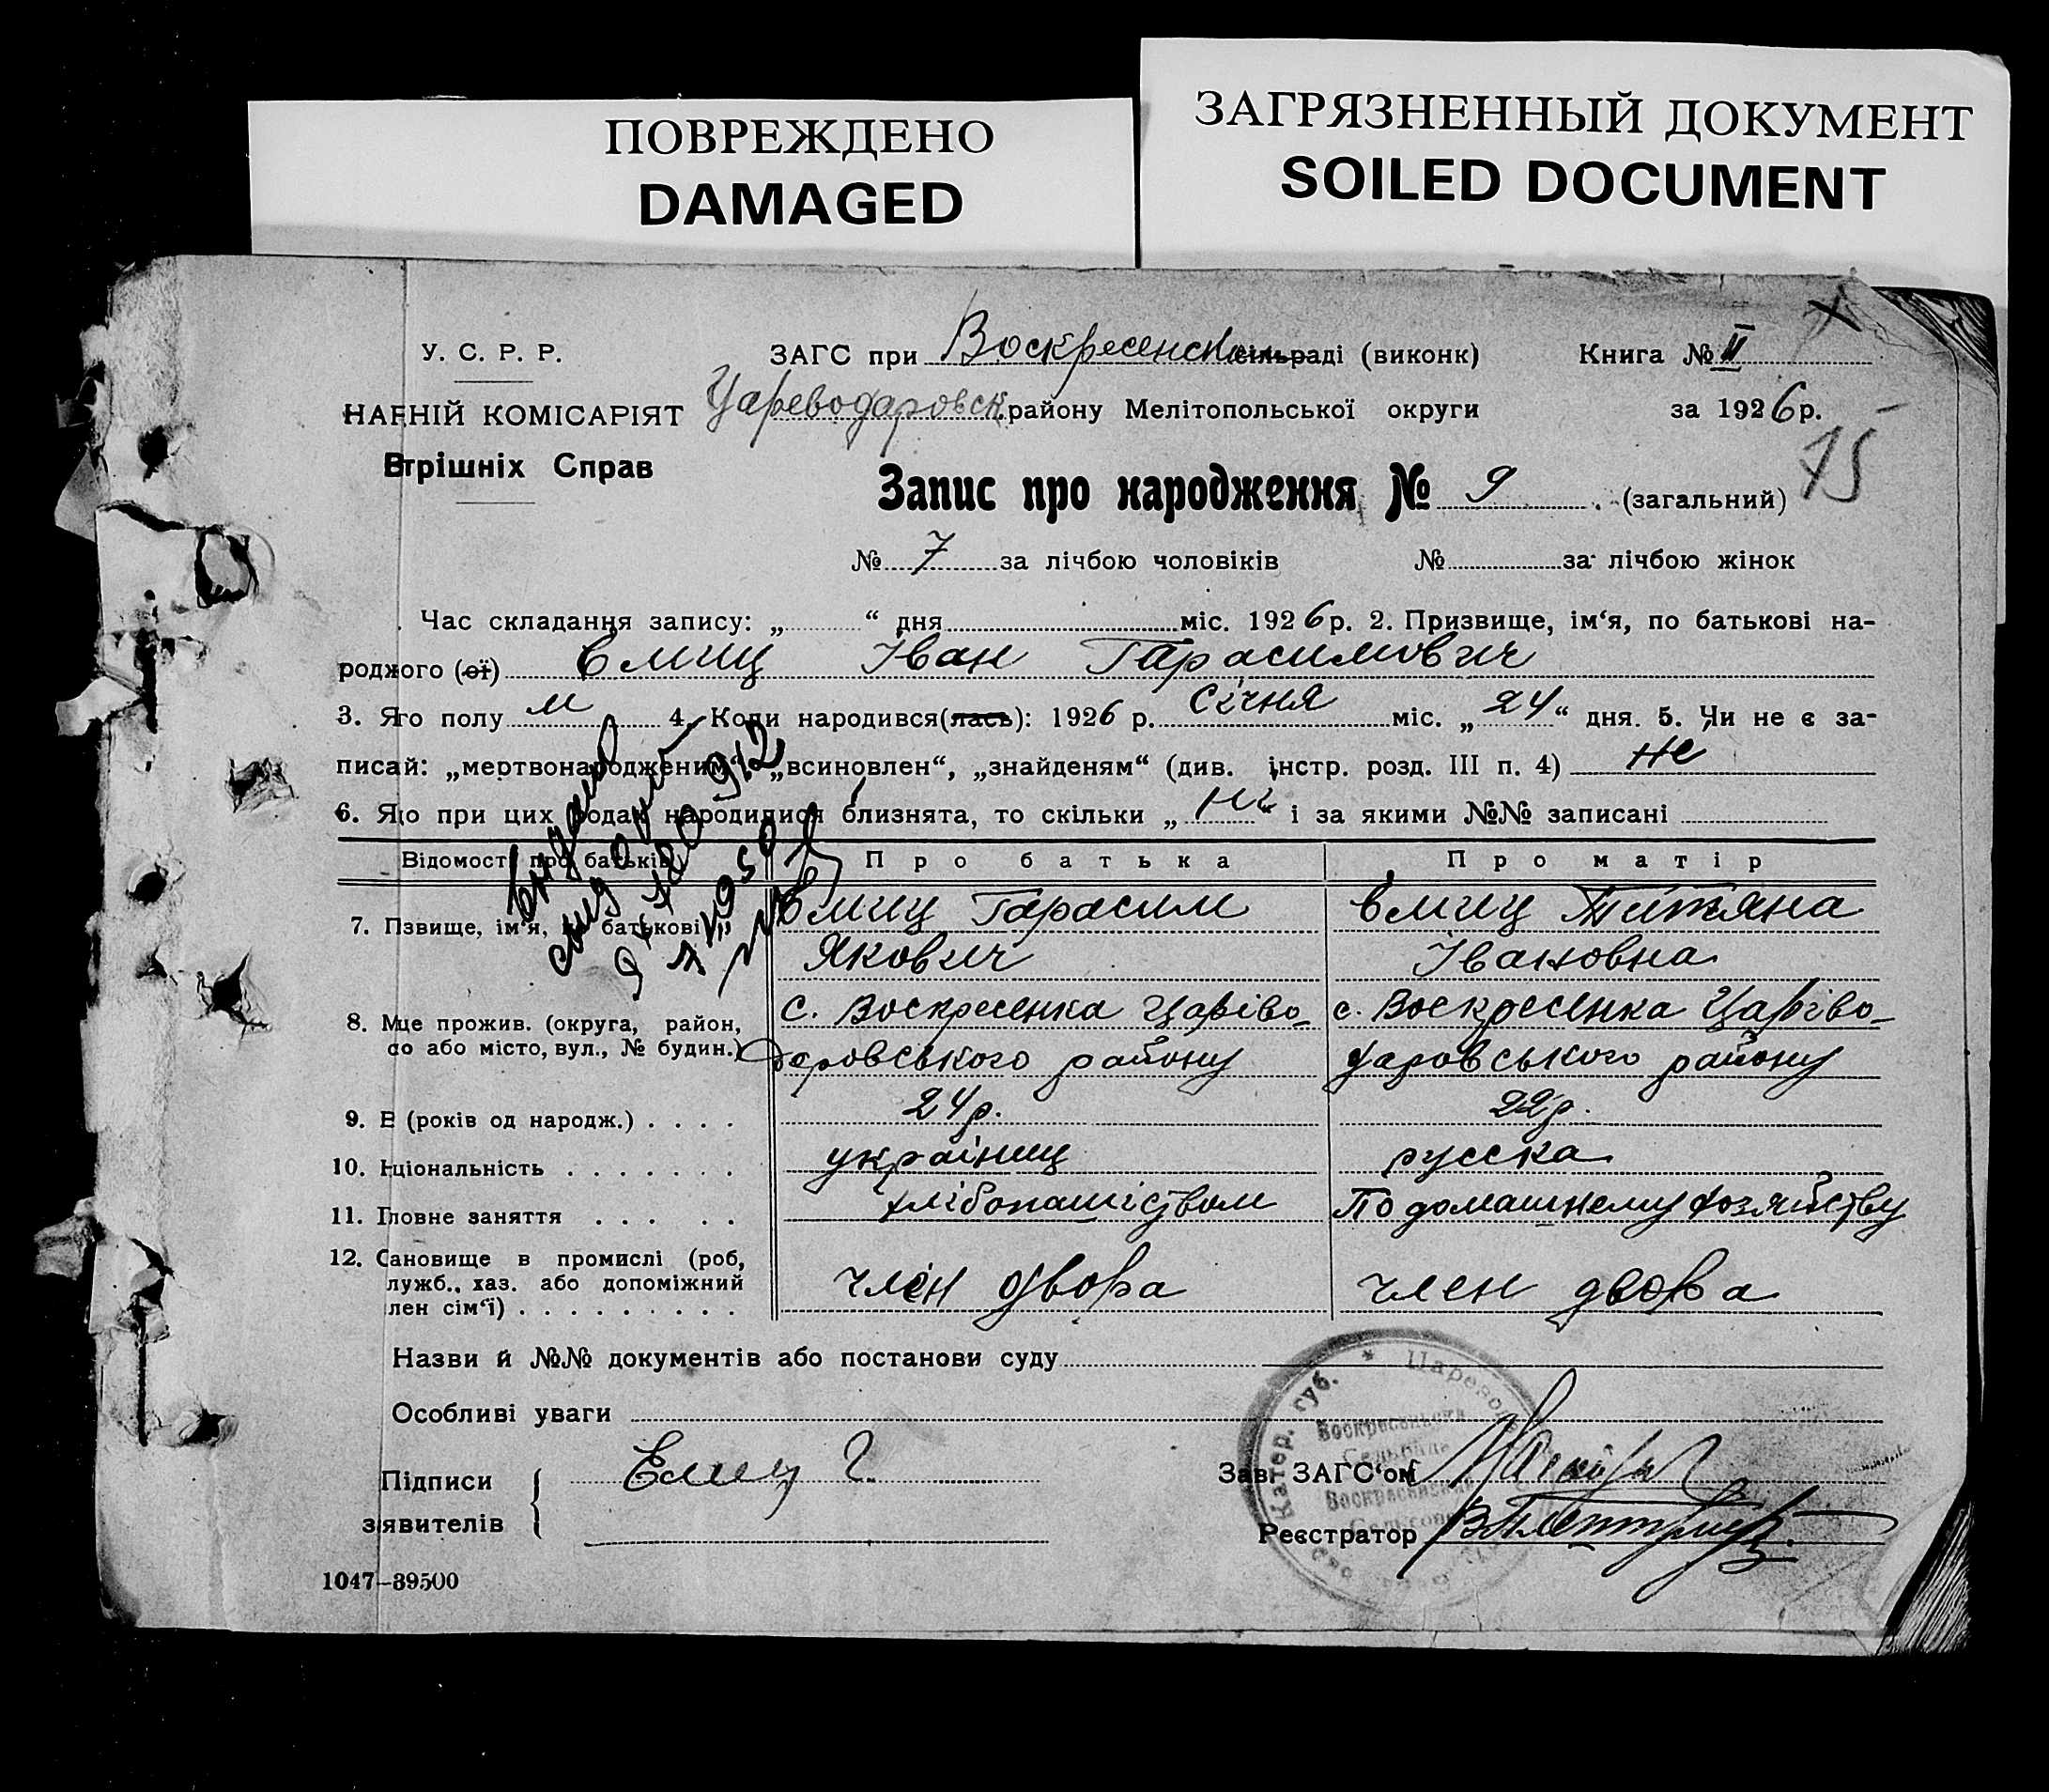 ПОВРЕЖДЕНО
DAMAGED
ЗАГРЯЗНЕННЫЙ ДОКУМЕНТ
SOILED DOCUMENT
У. С. Р. Р.
ЗАГС при Воскресенск сільраді (виконк) Книга № II
НАРНІЙ КОМІСАРІЯТ Цареводаровск району Мелітопольської округи за 1926 р.
Втрішніх Справ
15
Запис про народження № 9 (загальний)
№ 7 за лічбою чоловіків № за лічбою жінок
Час складання запису: „ “ дня міс. 1926 р. 2. Призвище, ім‘я, по батькові на-
роджого (ої) Ємиц Іван Гарасимович
3. Яго полу м 4. Коли народився(лась): 1926 р. Січня міс. „24“ дня. 5. Чи не є за-
писай: „мертвонародженим“ „всиновлен“, „знайденям“ (див. інстр. розд. III п. 4) не
6. Яцо при цих родах народилися близнята, то скільки „ні“ і за якими №№ записані
Відомості про батьків Про батька Про матір
7. Пзвище, ім‘я, по батькові Ємиц Гарасим Ємиц Титяна
Якович Івановна
8. Мце прожив. (округа, район, с. Воскресенка Царіво- с. Воскресенка Царіво-
со або місто, вул., № будин.) даровського району даровського району
9. В (років од народж.) . . . . 24 р. 22 р.
10. Нціональність . . . . . . . українец русска
11. Гловне заняття . . . . . хлібопашіством По домашнему хозяйству
12. Сановище в промислі (роб,
лужб., хаз. або допоміжний член двора член двора
лен сім‘ї) . . . . . . . . .
Назви й №№ документів або постанови суду
Особливі уваги
Підписи Емец Г. Зав. ЗАГС‘ом
зявителів Реєстратор
1047–39500